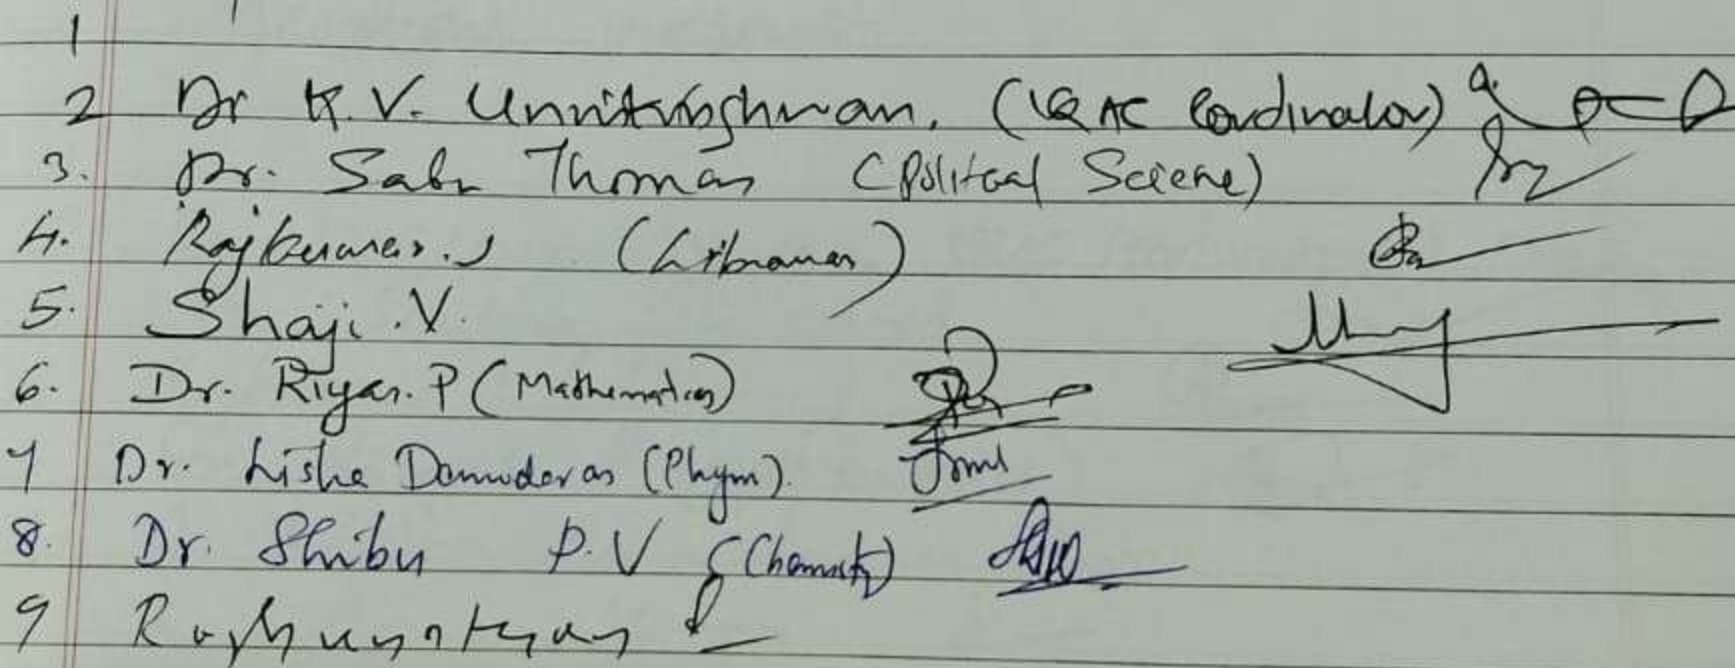 1
2 Dr K.V. Unnikrishnan. (IQAC Coordinator)
3. Dr. Sabu Thomas (Political Science)
4. Rajkumar. J (Librarian)
5. Shaji. V.
6. Dr. Riyas. P (Mathematics)
7 Dr. Lisha Damodaran (Physics)
8. Dr. Shibu P.V (Chemistry)
9